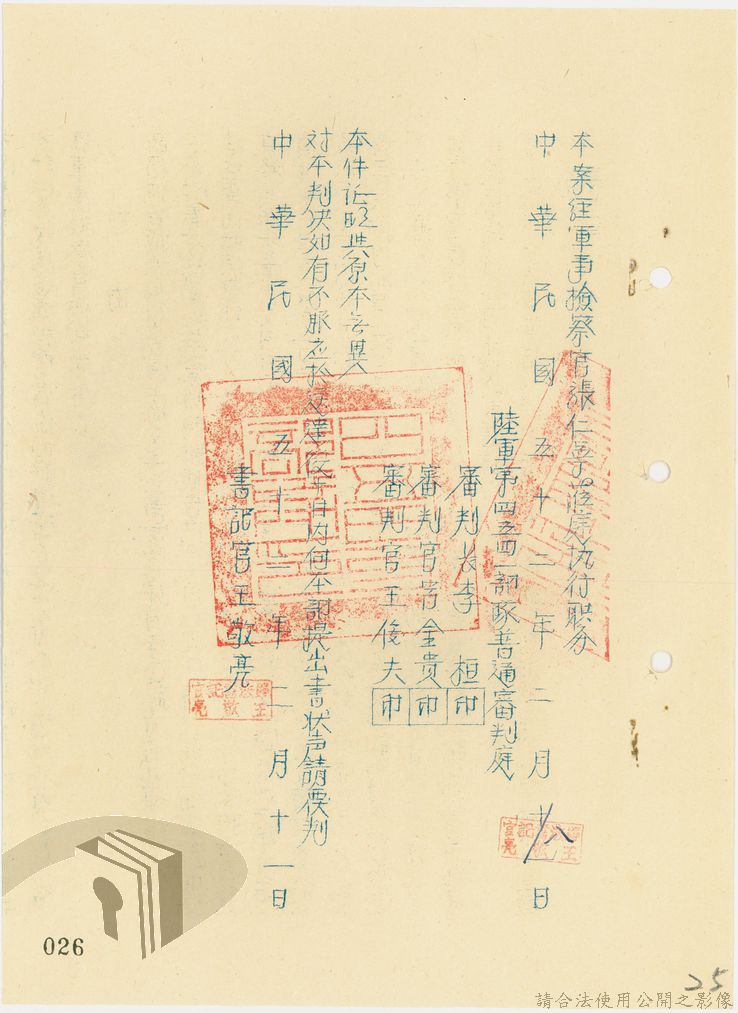 本案經軍事檢察官張仁孚蒞庭執行職務
中華民國五十二年二月八日
陸軍第四五四一部隊普通審判庭
審判長李桓印
審判官曾金贵印
審判官王俊夫印
本件證明與原本無異
对本判决如有不服应於送達後十日內向本部提出書狀声請覆判
中華民國五十二年二月十一日
書記官王敬亮
026
25
請合法使用公開之影像